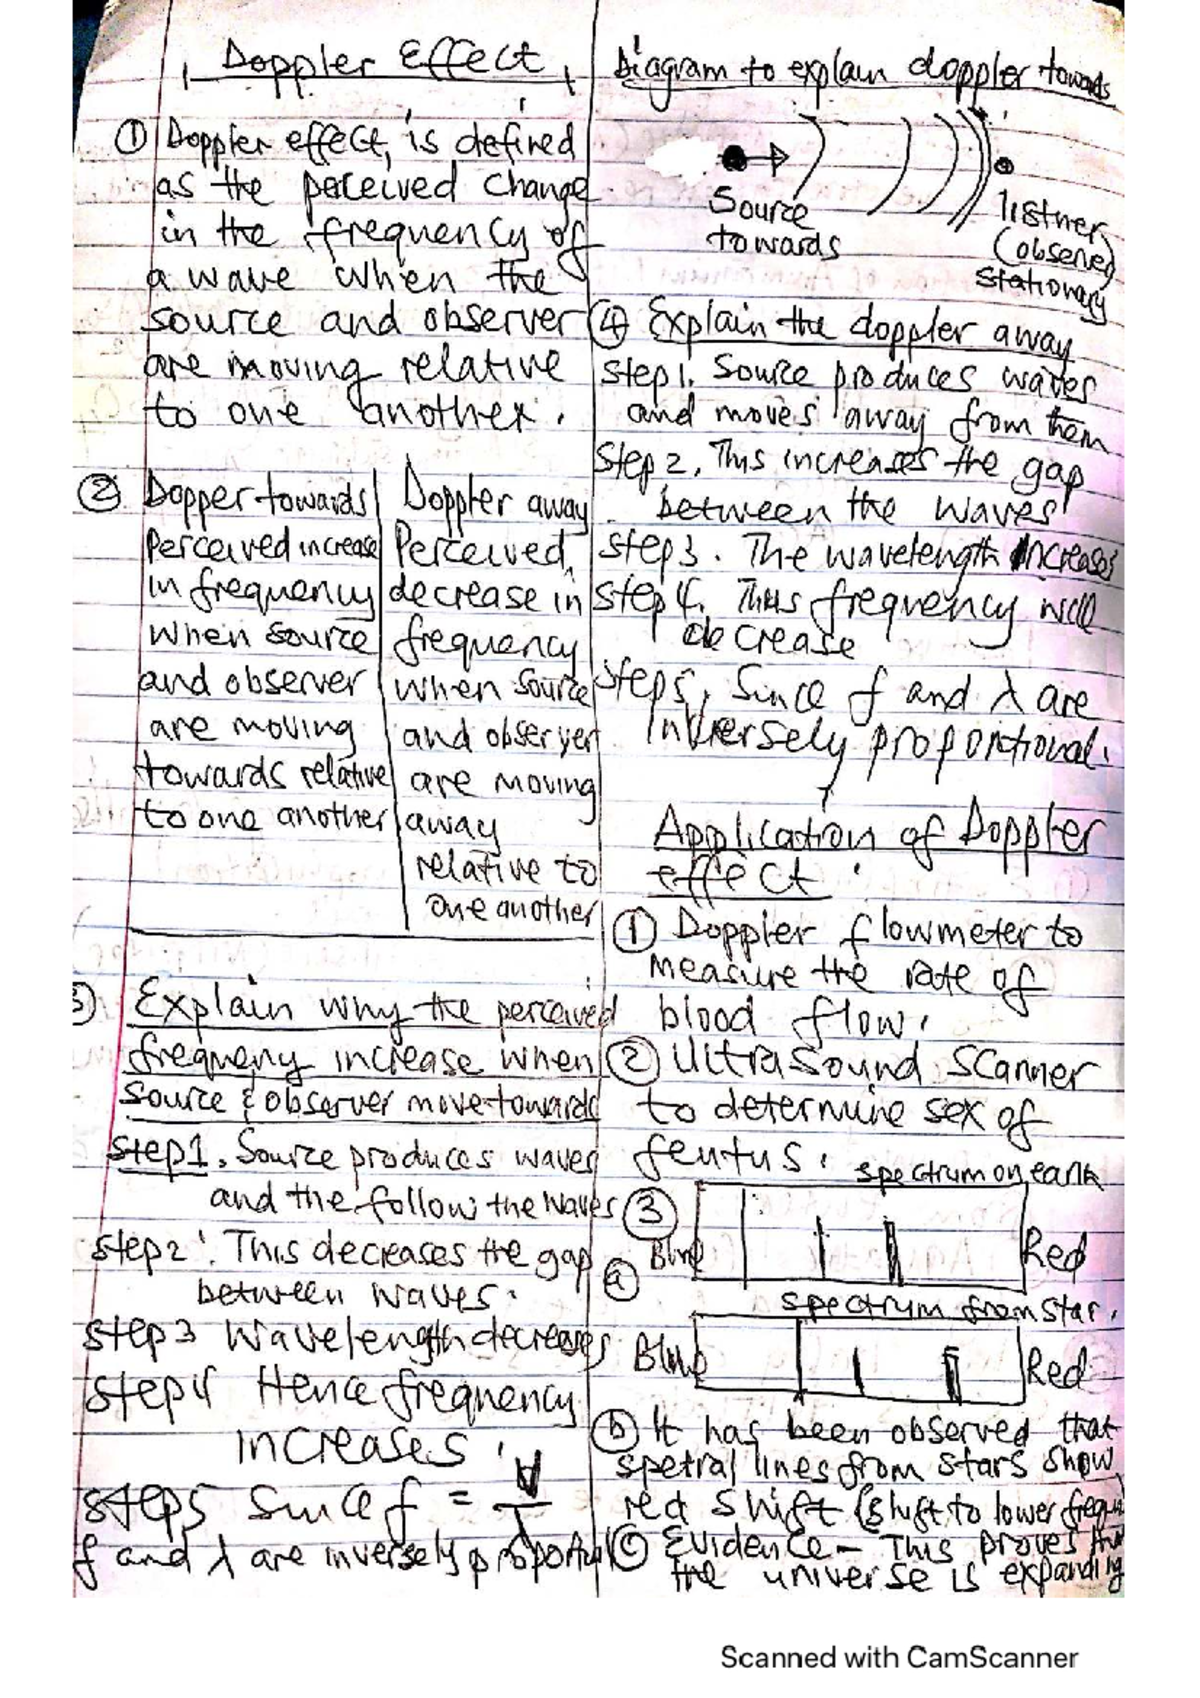 Doppler Effect
① Doppler effect, is defined
as the perceived change
in the frequency of
a wave when the
source and observer
are moving relative
to one another.
② Dopper towards
Perceived increase
in frequency
when source
and observer
are moving
towards relative
to one another
Doppler away
Perceived
decrease in
frequency
when source
and observer
are moving
away
relative to
one another
Explain why the perceived
frequeny increase when
source & observer move towards
step1. Source produces waves
and the follow the waves
step2. This decreases the gap
between waves.
step3 Wavelength decreases
step4 Hence frequency
increases.
step5 Since f = V/λ
f and λ are inversely
Diagram to explain doppler towards
Source
towards
listner
(observer)
stationary
④ Explain the doppler away
step1. Source produces waves
and moves away from them
Step 2. This increases the gap
between the waves
step3. The wavelength increases
step4. Thus frequency will
decrease
step5, Since f and λ are
Inversely proportional.
Application of Doppler
effect
① Doppler flowmeter to
measure the rate of
blood flow.
② Ultrasound scanner
to determine sex of
feutus.
spectrum on earth
③
ⓐ
Blue
Red
spectrum from star.
Blue
Red
ⓑ It has been observed that
spetral lines from stars show
red shift (shift to lower
ⓒ Evidence - This proves
the universe is expanding
Scanned with CamScanner